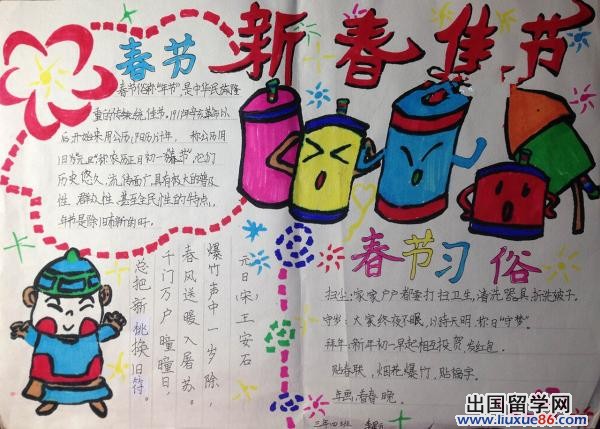 新春佳节
春节
春节俗称“年节”,是中华民族隆
重的传统佳节。
后开始采用公历(阳历)计年,
历史悠久,流传面广,具有极大的普及
性,群众性,甚至全民性的特点,
年节是除旧布新的
元日(宋)王安石
爆竹声中一岁除,
春风送暖入屠苏。
千门万户曈曈日,
总把新桃换旧符。
春节习俗
扫尘:家家户户都要打扫卫生,清洗器具,拆洗被子。
守岁:大家终夜不眠,以待天明,称曰“守岁”。
拜年:新年初一早起相互投贺,发红包。
贴春联,烟花爆竹,贴福字。
年画,看春晚。
三年四班
出国留学网
www.liuxue86.com